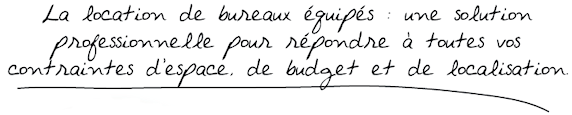 La location de bureaux équipés : une solution
professionnelle pour répondre à toutes vos
contraintes d'espace, de budget et de localisation